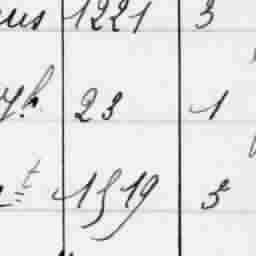 us 1221 3
yh. 23 1
t 1519 3